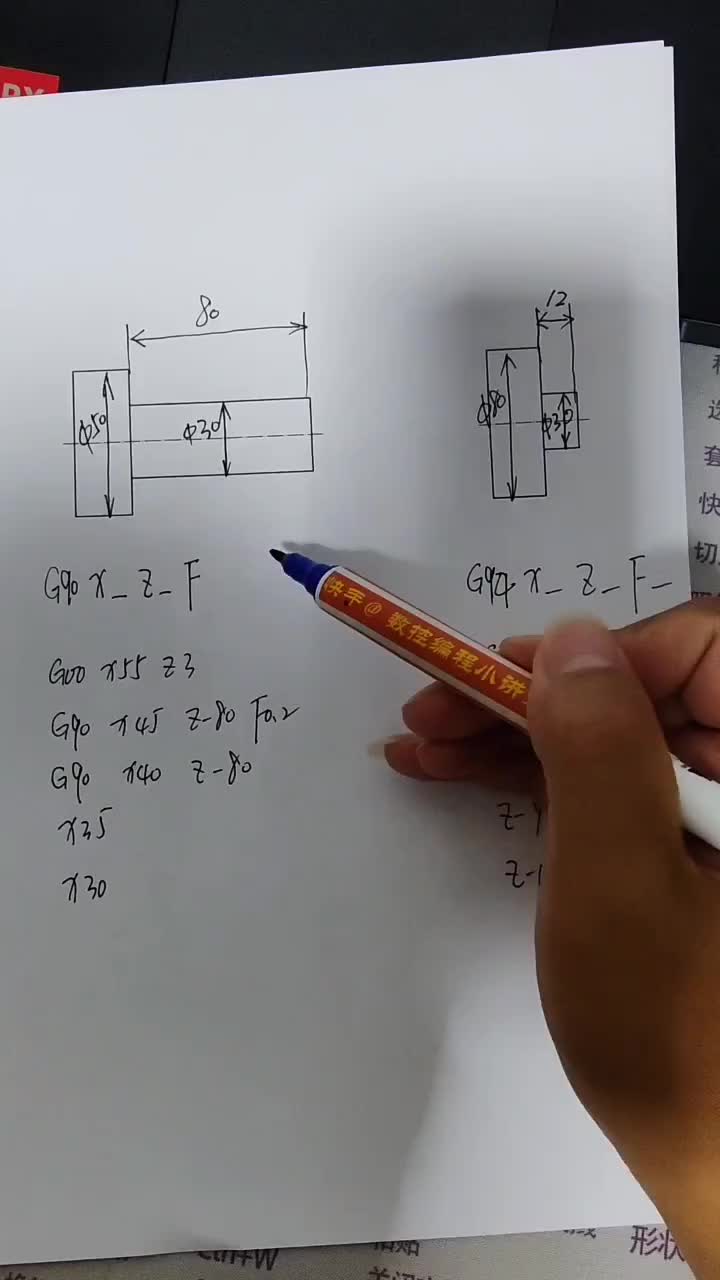 80
12
φ50
φ30
φ80
φ30
G90 X_ Z_ F
G94 X_ Z_ F_
G00 X55 Z3
G90 X45 Z-80 F0.2
G90 X40 Z-80
X35
X30
快手@数控编程小讲
Ctrl+W
粘贴
形状